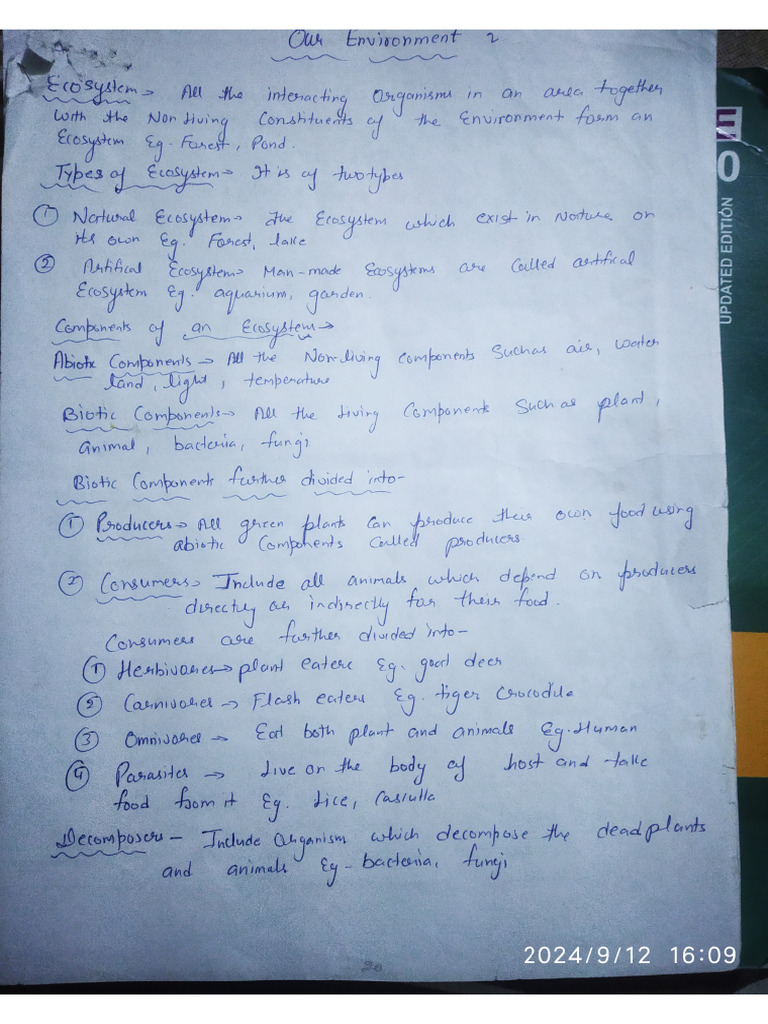 Our Environment 2
Ecosystem → All the interacting Organisms in an area together
with the Non living Constituents of the Environment form an
Ecosystem Eg. Forest, Pond.
Types of Ecosystem → It is of two types
① Natural Ecosystem → The Ecosystem which exist in Nature on
its own Eg. Forest, lake
② Artifical Ecosystem → Man-made Ecosystems are Called artifical
Ecosystem Eg. aquarium, garden.
Components of an Ecosystem →
Abiotic Components → All the Non-living components Such as air, water
land, light, temperature
Biotic Components → All the living Components Such as plant,
animal, bacteria, fungi
Biotic Components further divided into-
① Producers → All green plants Can produce their own food using
abiotic Components Called producers.
② Consumers → Include all animals which depend on producers
directly or indirectly for their food.
Consumers are further divided into-
① Herbivores → plant eaters Eg. goat deer
② Carnivores → Flash eaters Eg. tiger Crocodile
③ Omnivores → Eat both plant and animals Eg. Human
④ Parasites → Live on the body of host and take
food from it Eg. Lice, Cascutta
Decomposers - Include Organism which decompose the dead plants
and animals Eg - bacteria, fungi
20
UPDATED EDITION
0
2024/9/12 16:09